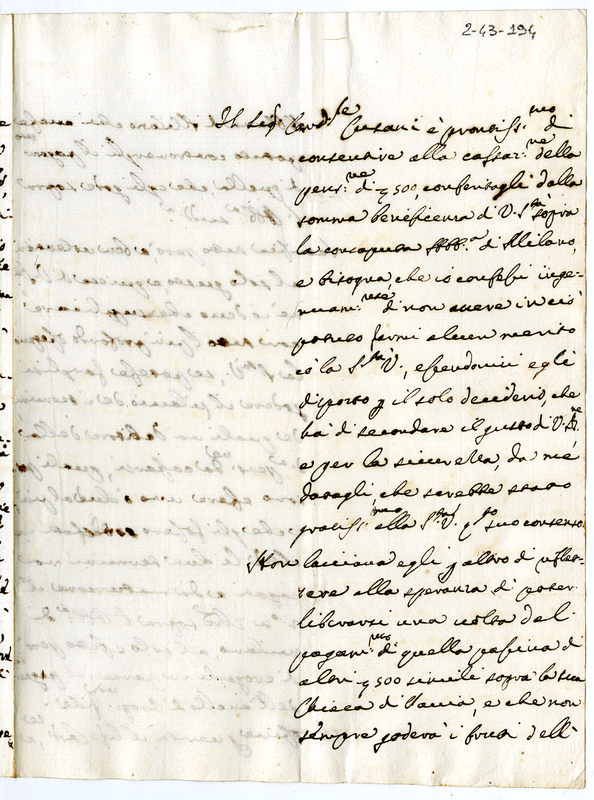 2-43-194
Il Sig.r Card.le Cusani è prontiss.mo di
consentire alla cassaz.ne della
pens.ne di 500, conferitagli dalla
somma beneficenza di V. S.tà sopra
la consaputa Abb.a di Milano,
e bisogna, che io confessi inge-
nuam.te di non avere in ciò
potuto farmi alcun merito
cò la S.tà V., essendovisi egli
disposto p il solo desiderio, che
hà di secondare il gusto di V. B.ne
e per la sicurezza, da me
datagli, che sarebbe stato
gratiss.mo alla S.tà V. q.to suo consenso
Non lasciava egli p altro di riflet-
tere alla speranza di poter
liberarsi una volta dal
pagam.to di quella passiva di
altri 500 simili sopra la sua
Chiesa di Pavia, e che non
sempre goderà i frutti dell'